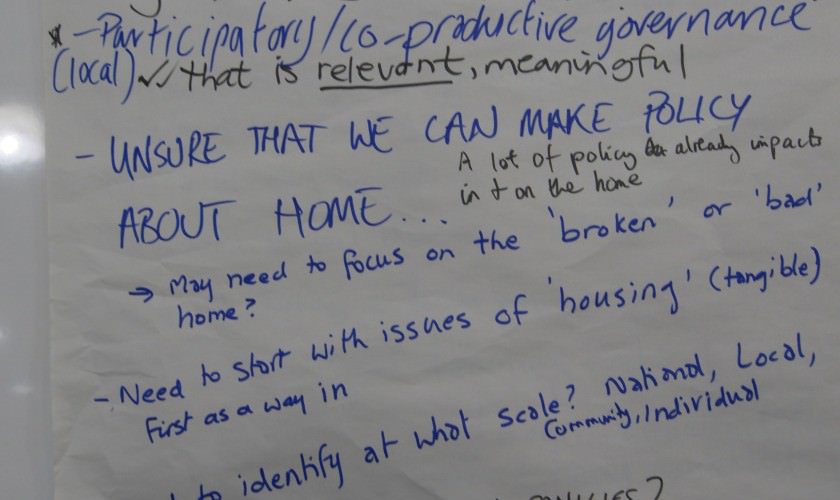 * - Participatory/co-productive governance
(local) ✓✓ that is relevant, meaningful
- UNSURE THAT WE CAN MAKE POLICY
A lot of policy already impacts
in & on the home
ABOUT HOME...
→ May need to focus on the 'broken' or 'bad'
home?
- Need to start with issues of 'housing' (tangible)
first as a way in
to identify at what scale? National, Local,
Community, Individual